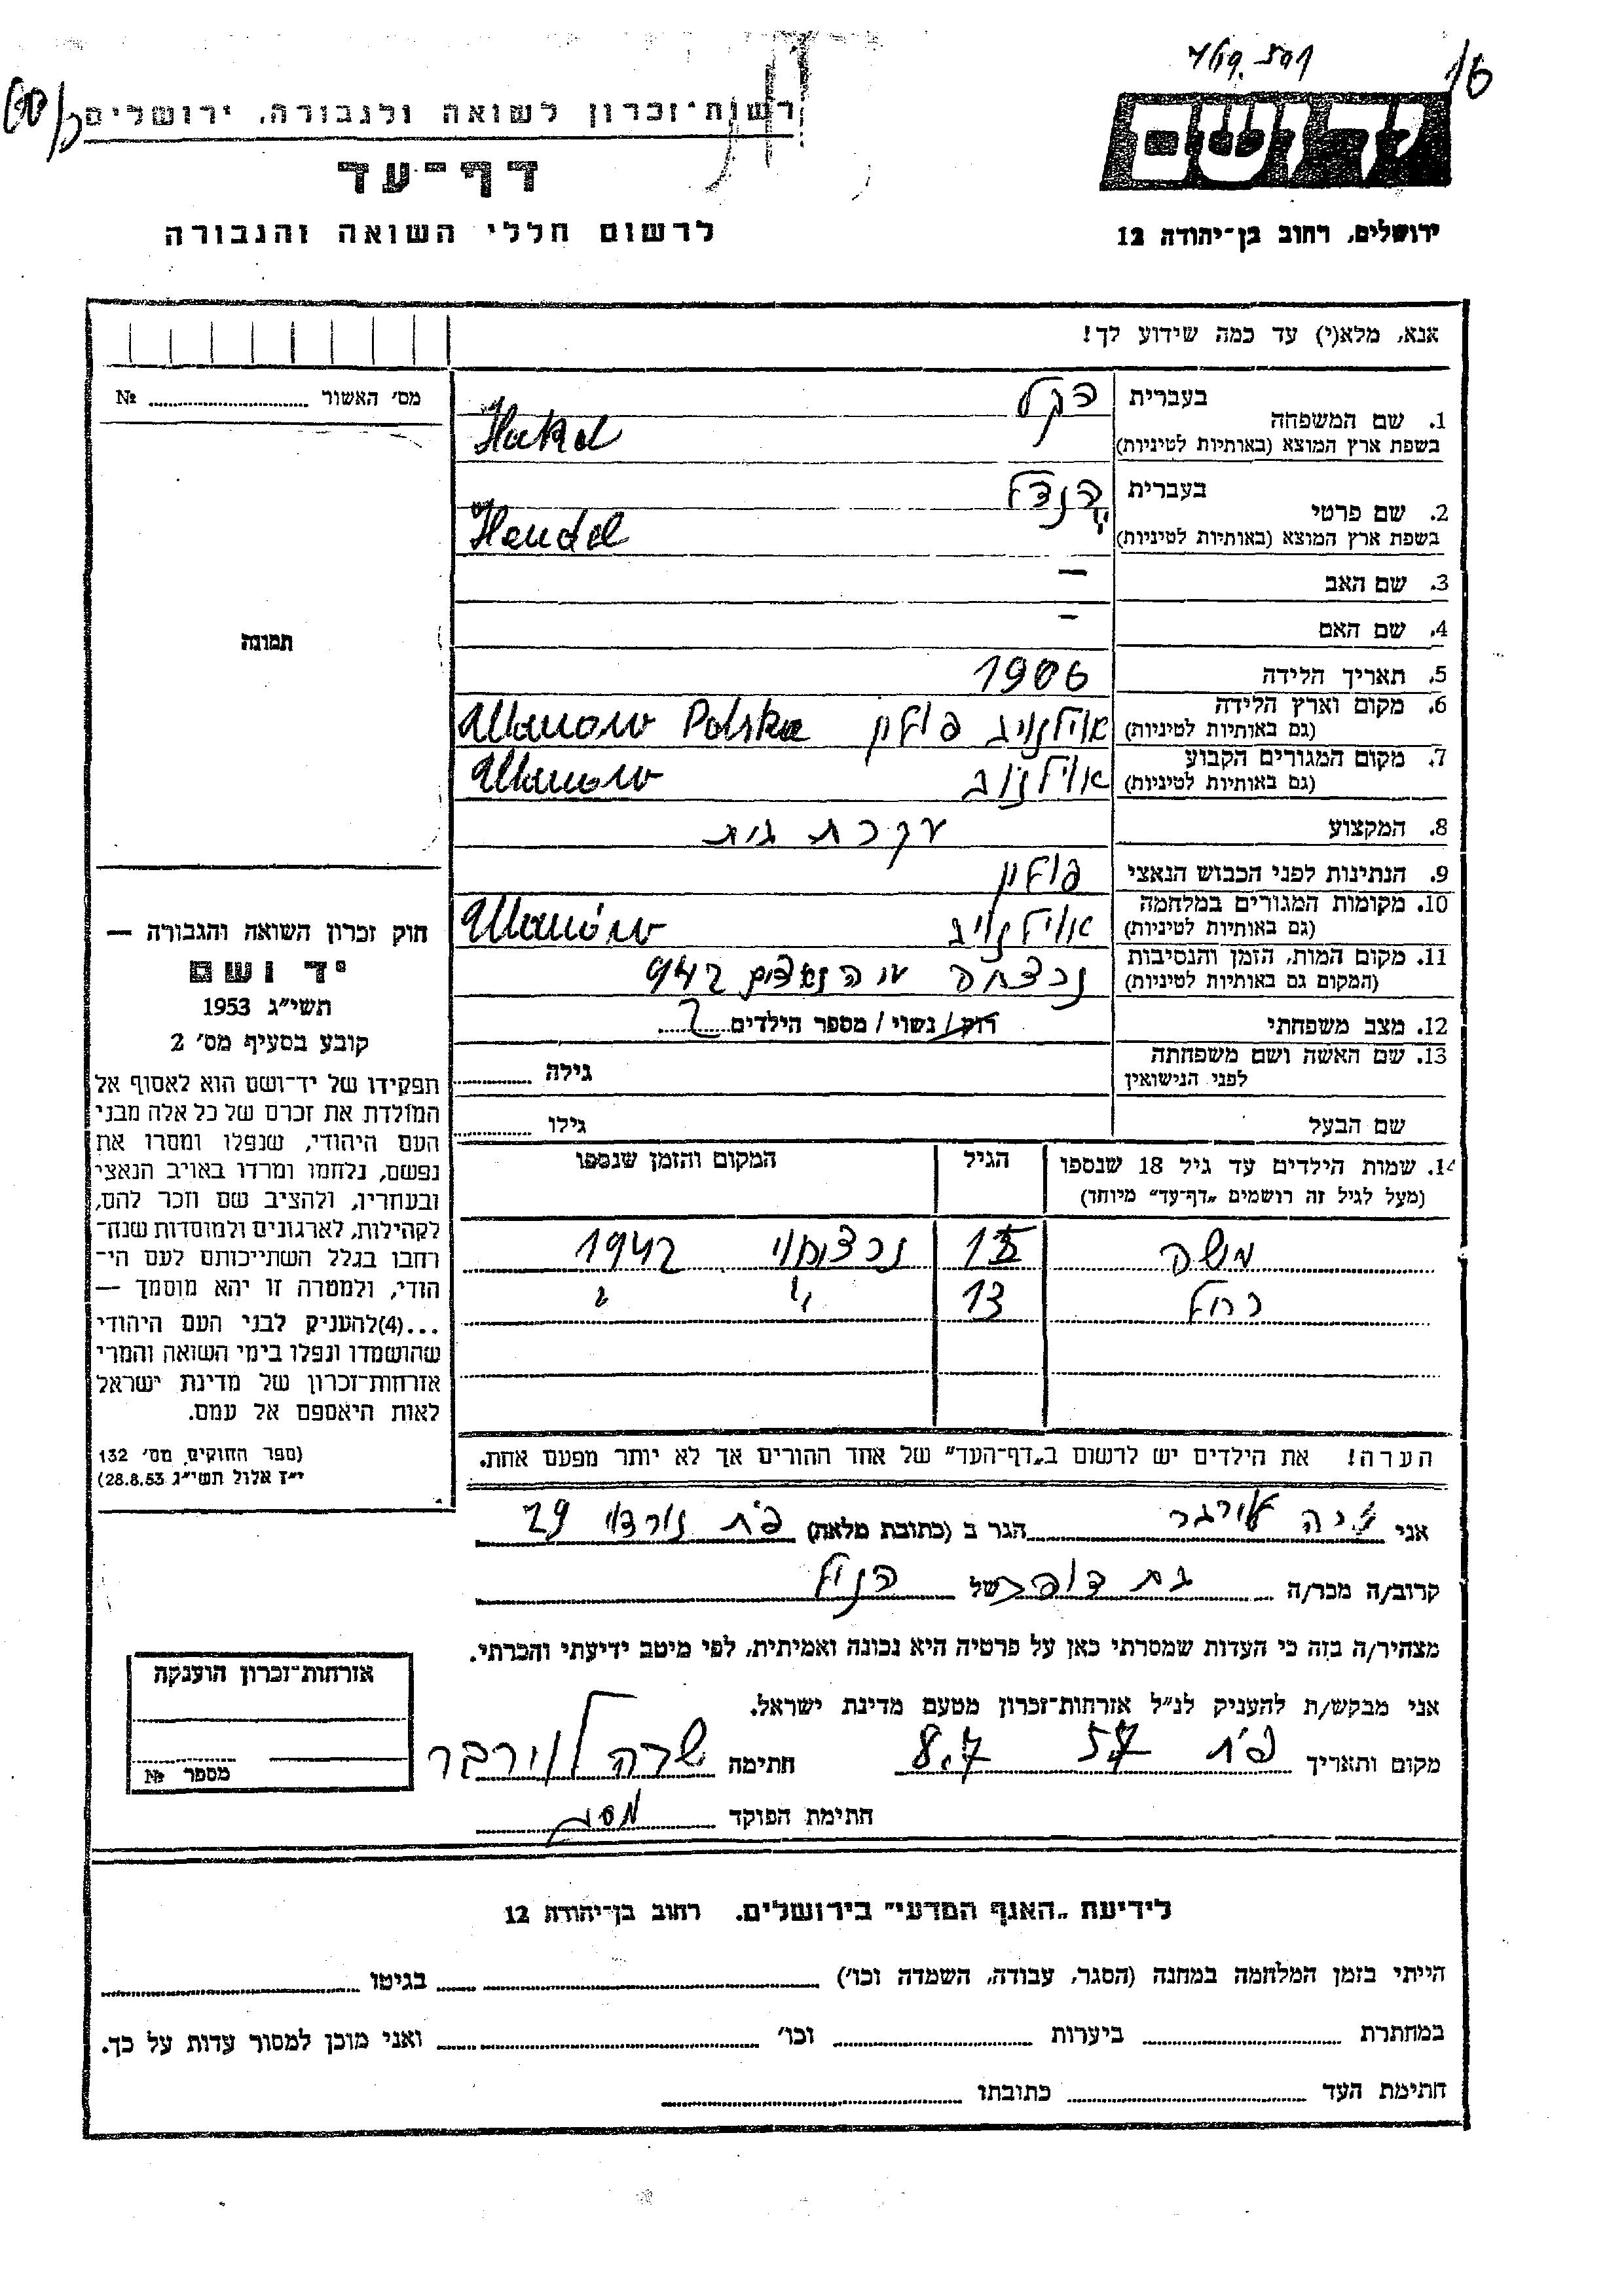 רשות־זכרון לשואה ולגבורה, ירושלים
דף־עד
לרשום חללי השואה והגבורה
יד ושם
ירושלים, רחוב בן־יהודה 12
אנא, מלא(י) עד כמה שידוע לך!
מס׳ האשור № ....................
תמונה
1. שם המשפחה
בעברית הקל
בשפת ארץ המוצא (באותיות לטיניות) Hakel
2. שם פרטי
בעברית הינדל
בשפת ארץ המוצא (באותיות לטיניות) Hendel
3. שם האב —
4. שם האם —
5. תאריך הלידה 1906
6. מקום וארץ הלידה
(גם באותיות לטיניות) אולנוב פולין Ulanow Polska
7. מקום המגורים הקבוע
(גם באותיות לטיניות) אולנוב Ulanow
8. המקצוע עקרת בית
9. הנתינות לפני הכבוש הנאצי פולין
10. מקומות המגורים במלחמה
(גם באותיות לטיניות) אולנוב Ulanów
11. מקום המות, הזמן והנסיבות
(המקום גם באותיות לטיניות) נרצחה ע״י הנאצים 942
12. מצב משפחתי רווק / נשוי / מספר הילדים 2
13. שם האשה ושם משפחתה
לפני הנישואין גילה
שם הבעל גילו
14. שמות הילדים עד גיל 18 שנספו הגיל המקום והזמן שנספו
(מעל לגיל זה רושמים „דף־עד״ מיוחד)
משה 15 נרצח 1942
רחל 13 " "
הערה! את הילדים יש לרשום ב„דף־העד״ של אחד ההורים אך לא יותר מפעם אחת.
חוק זכרון השואה והגבורה —
יד ושם
תשי״ג 1953
קובע בסעיף מס׳ 2
תפקידו של יד־ושם הוא לאסוף אל
המולדת את זכרם של כל אלה מבני
העם היהודי, שנפלו ומסרו את
נפשם, נלחמו ומרדו באויב הנאצי
ובעוזריו, ולהציב שם וזכר להם,
לקהילות, לארגונים ולמוסדות שנח־
רבו בגלל השתייכותם לעם הי־
הודי, ולמטרה זו יהא מוסמך —
...(4)להעניק לבני העם היהודי
שהושמדו ונפלו בימי השואה והמרי
אזרחות־זכרון של מדינת ישראל
לאות היאספם אל עמם.
(ספר החוקים מס׳ 132
י״ז אלול תשי״ג 28.8.53)
אני הגר ב (כתובת מלאה) פ״ת נורדוי 29
קרוב/ה מכר/ה בת דודה של הנ״ל
מצהיר/ה בזה כי העדות שמסרתי כאן על פרטיה היא נכונה ואמיתית, לפי מיטב ידיעתי והכרתי.
אני מבקש/ת להעניק לנ״ל אזרחות־זכרון מטעם מדינת ישראל.
מקום ותאריך פ״ת 57 8.7 חתימה שרה
חתימת הפוקד
אזרחות־זכרון הוענקה
מספר №
לידיעת „האגף המדעי״ בירושלים. רחוב בן־יהודה 12
הייתי בזמן המלחמה במחנה (הסגר, עבודה, השמדה וכו׳) בגיטו
במחתרת ביערות וכו׳ ואני מוכן למסור עדות על כך.
חתימת העד כתובתו